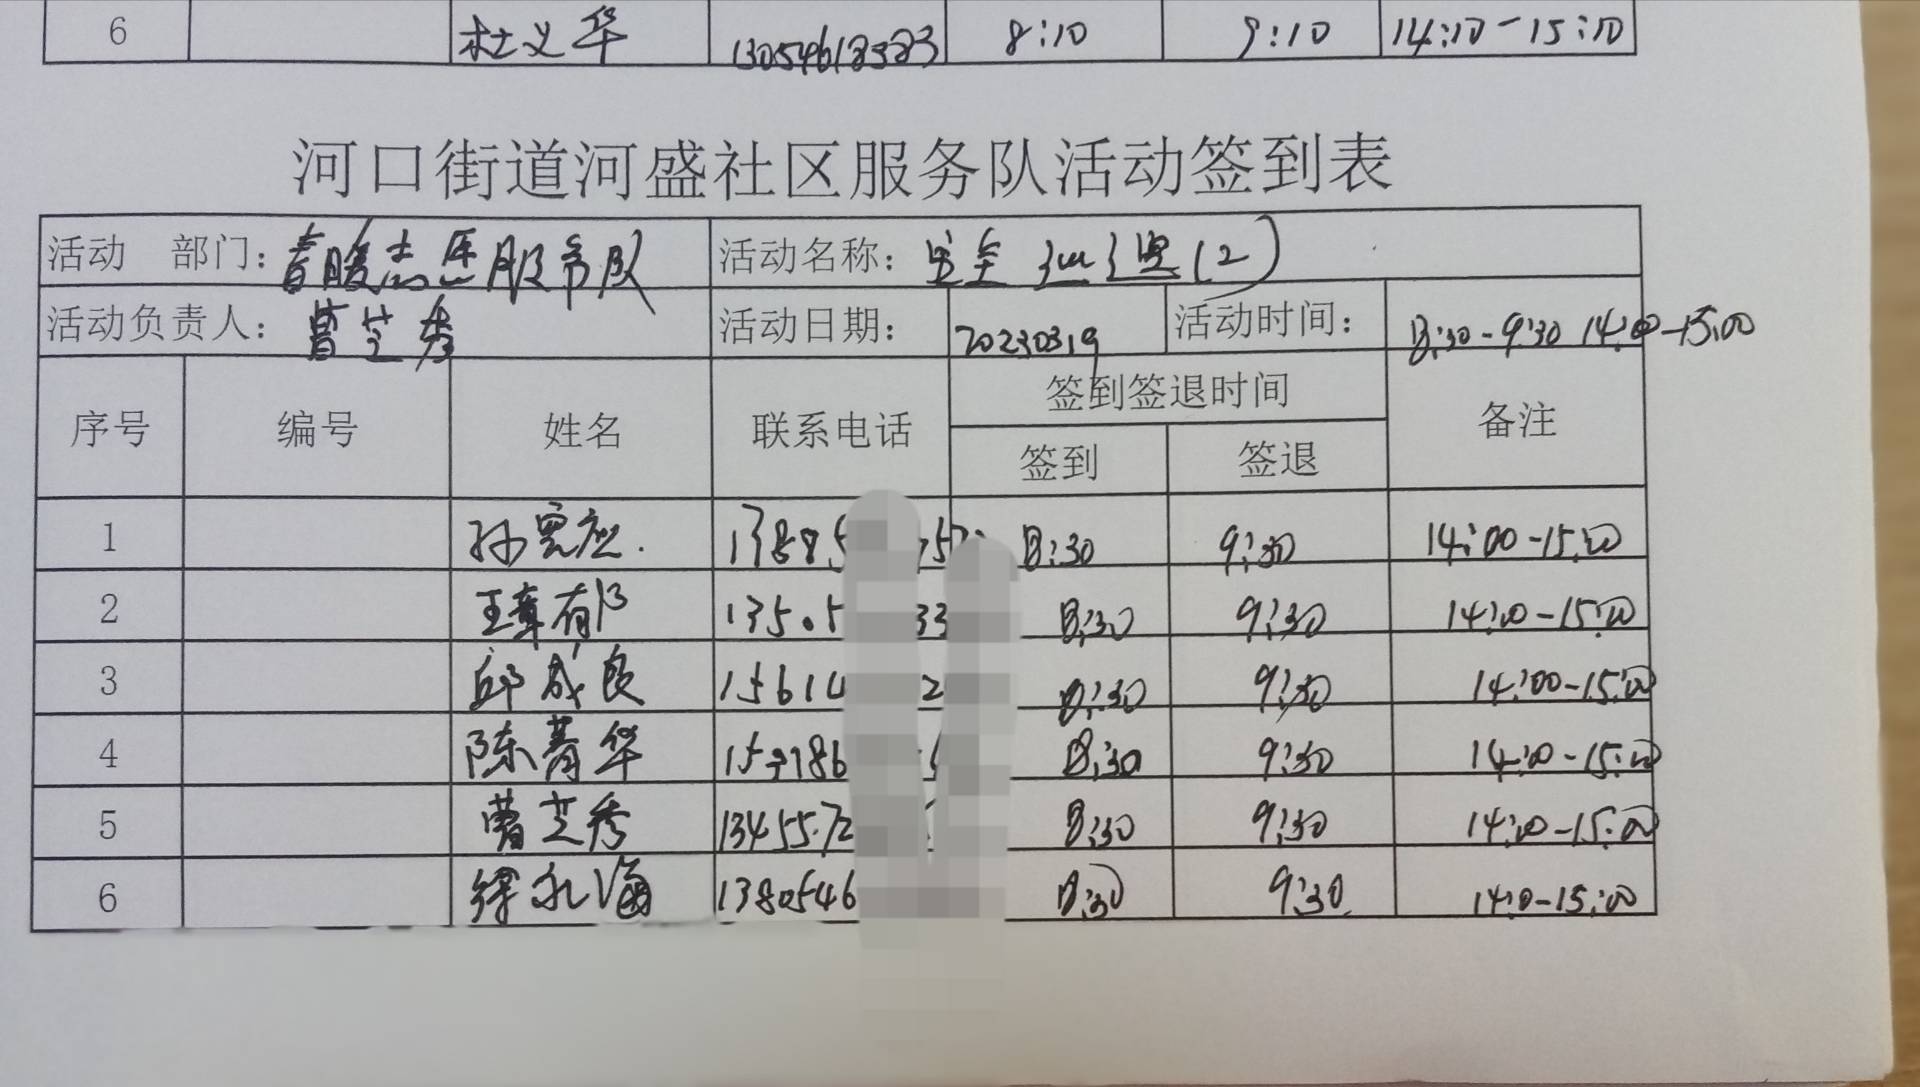 6 杜义华 13054618583 8:10 9:10 14:10-15:10
河口街道河盛社区服务队活动签到表
活动 部门: 春暖志愿服务队 活动名称: 安全巡逻(2)
活动负责人: 曹芝秀 活动日期: 20230319 活动时间: 8:30-9:30 14:00-15:00
序号 编号 姓名 联系电话 签到签退时间 备注
签到 签退
1 8:30 9:30 14:00-15:00
2 王章有 135.5 33 8:30 9:30 14:00-15:00
3 邱成良 15614 2 8:30 9:30 14:00-15:00
4 陈菁华 8:30 9:30 14:00-15:00
5 曹芝秀 13455.72 8:30 9:30 14:00-15:00
6 徐永海 1380546 8:30 9:30 14:0-15:00